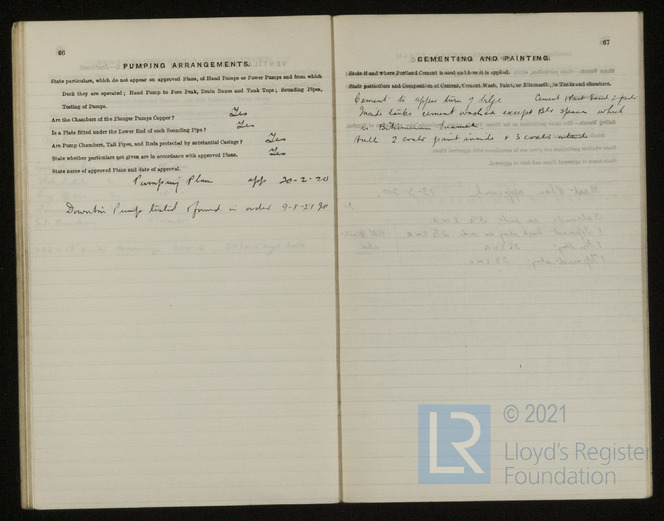 66
PUMPING ARRANGEMENTS.
State particulars, which do not appear on approved Plans, of Hand Pumps or Power Pumps and from which
Deck they are operated; Hand Pump to Fore Peak, Drain Boxes and Tank Tops; Sounding Pipes,
Testing of Pumps.
Are the Chambers of the Plunger Pumps Copper? Yes
Is a Plate fitted under the Lower End of each Sounding Pipe? Yes
Are Pump Chambers, Tail Pipes, and Rods protected by substantial Casings? Yes
State whether particulars not given are in accordance with approved Plans. Yes
State name of approved Plans and date of approval.
Pumping Plan app 20-2-20
Downton Pump tested & found in order 9-8-21
67
CEMENTING AND PAINTING.
State if and where Portland Cement is used and how it is applied.
State particulars and Composition of Cement, Cement Wash, Paint, or Bitumastic, in Tanks and elsewhere.
Cement to upper turn of bilge Cement 1 Part Sand 2 parts
tanks cement washed except Blr space which
is Bitumen
Hull 2 coats paint inside & 3 coats outside
© 2021
LR
Lloyd's Register
Foundation